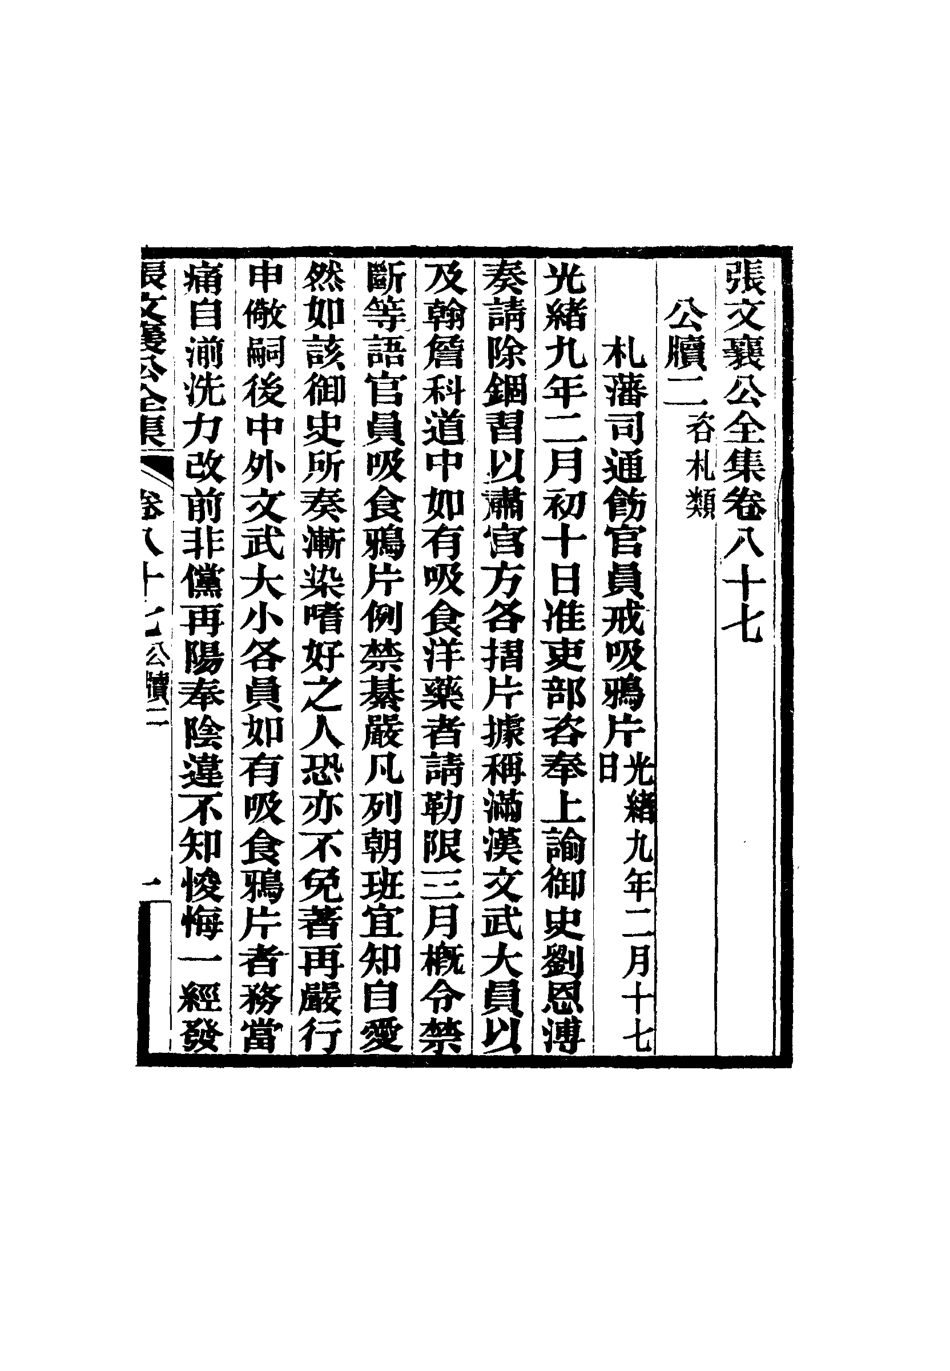 張文襄公全集卷八十七
公牘二 咨札類
札藩司通飭官員戒吸鴉片 光緒九年二月十七日
光緒九年二月初十日准吏部咨奉上諭御史劉恩溥
奏請除錮習以肅官方各摺片據稱滿漢文武大員以
及翰詹科道中如有吸食洋藥者請勒限三月概令禁
斷等語官員吸食鴉片例禁綦嚴凡列朝班宜知自愛
然如該御史所奏漸染嗜好之人恐亦不免著再嚴行
申儆嗣後中外文武大小各員如有吸食鴉片者務當
痛自湔洗力改前非儻再陽奉陰違不知悛悔一經發
張文襄公全集 卷八十七 公牘二 一